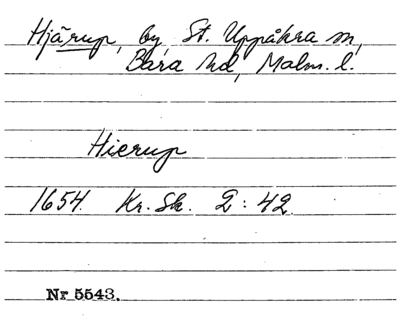 Hjärup, by, St. Uppåkra sn,
Bara hd, Malm. l.
Hierup
1654. Kr. Sk. 2:42
Nr 5543.